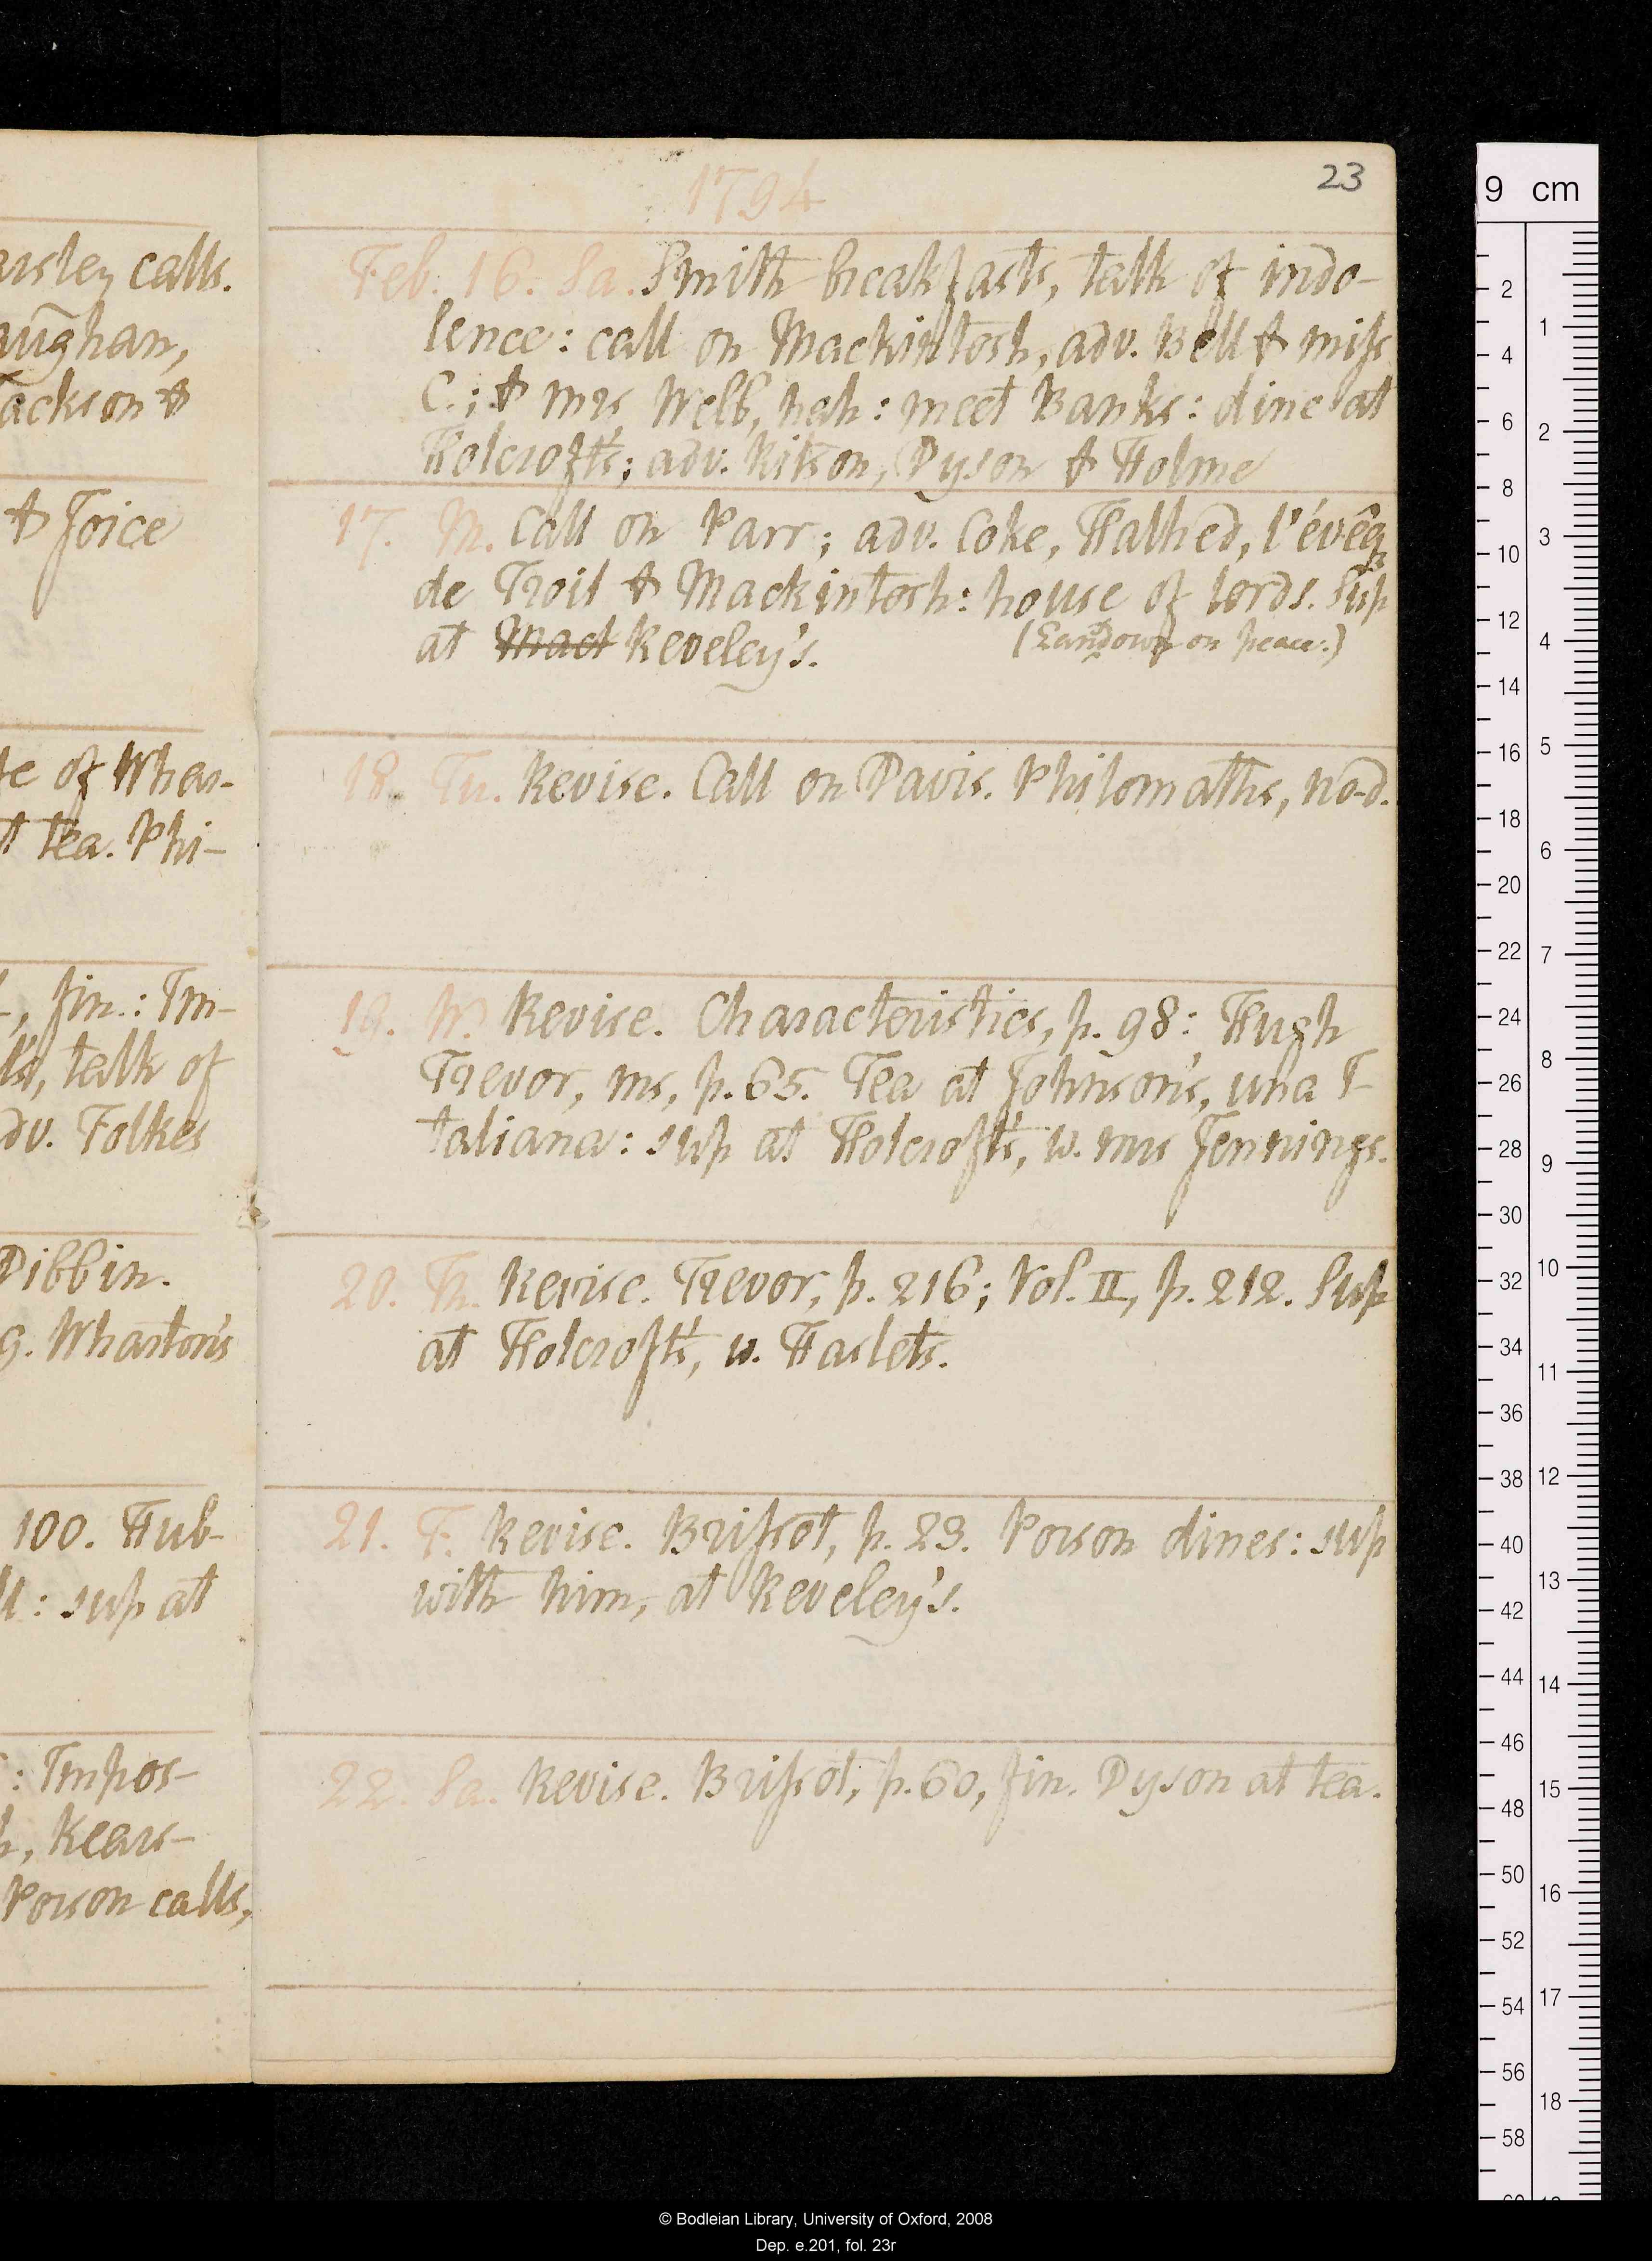 arsley calls.
aughan,
ackson &
& Joice
te of Whar-
t tea. Phi-
, fin.: Im-
ts, talk of
dv. Folkes
Dibbin.
g. Wharton's
100. Hub-
: sup at
: Impos-
h, Kears-
Porson calls,
23
1794
Feb. 16. Sa. Smith breakfasts, talk of indo-
lence: call on Mackintosh, adv. Bell & miss
C.; & mrs Webb, nah: meet Banks: dine at
Holcroft's; adv. Ritson, Dyson & Holme
17. M. Call on Parr; adv. Coke, Halhed, l'évêq
de Troil & Mackintosh: house of lords. Sup
(Landown on peace.)
at Mact Reveley's.
18. Tu. Revise. Call on Davis. Philomaths, no-d.
19. W. Revise. Characteristics, p. 98: Hugh
Trevor, ms, p. 65. Tea at Johnson's, una I-
taliana: sup at Holcroft's, w. mrs Jennings.
20. Th. Revise. Trevor, p. 216; Vol. II, p. 212. Sup
at Holcroft's, w. Haslets.
21. F. Revise. Brissot, p. 29. Porson dines: sup
with him, at Reveley's.
22. Sa. Revise. Brissot, p. 60, fin. Dyson at tea.
9 cm
2
4
6
8
10
12
14
16
18
20
22
24
26
28
30
32
34
36
38
40
42
44
46
48
50
52
54
56
58
1
2
3
4
5
6
7
8
9
10
11
12
13
14
15
16
17
18
© Bodleian Library, University of Oxford, 2008
Dep. e.201, fol. 23r